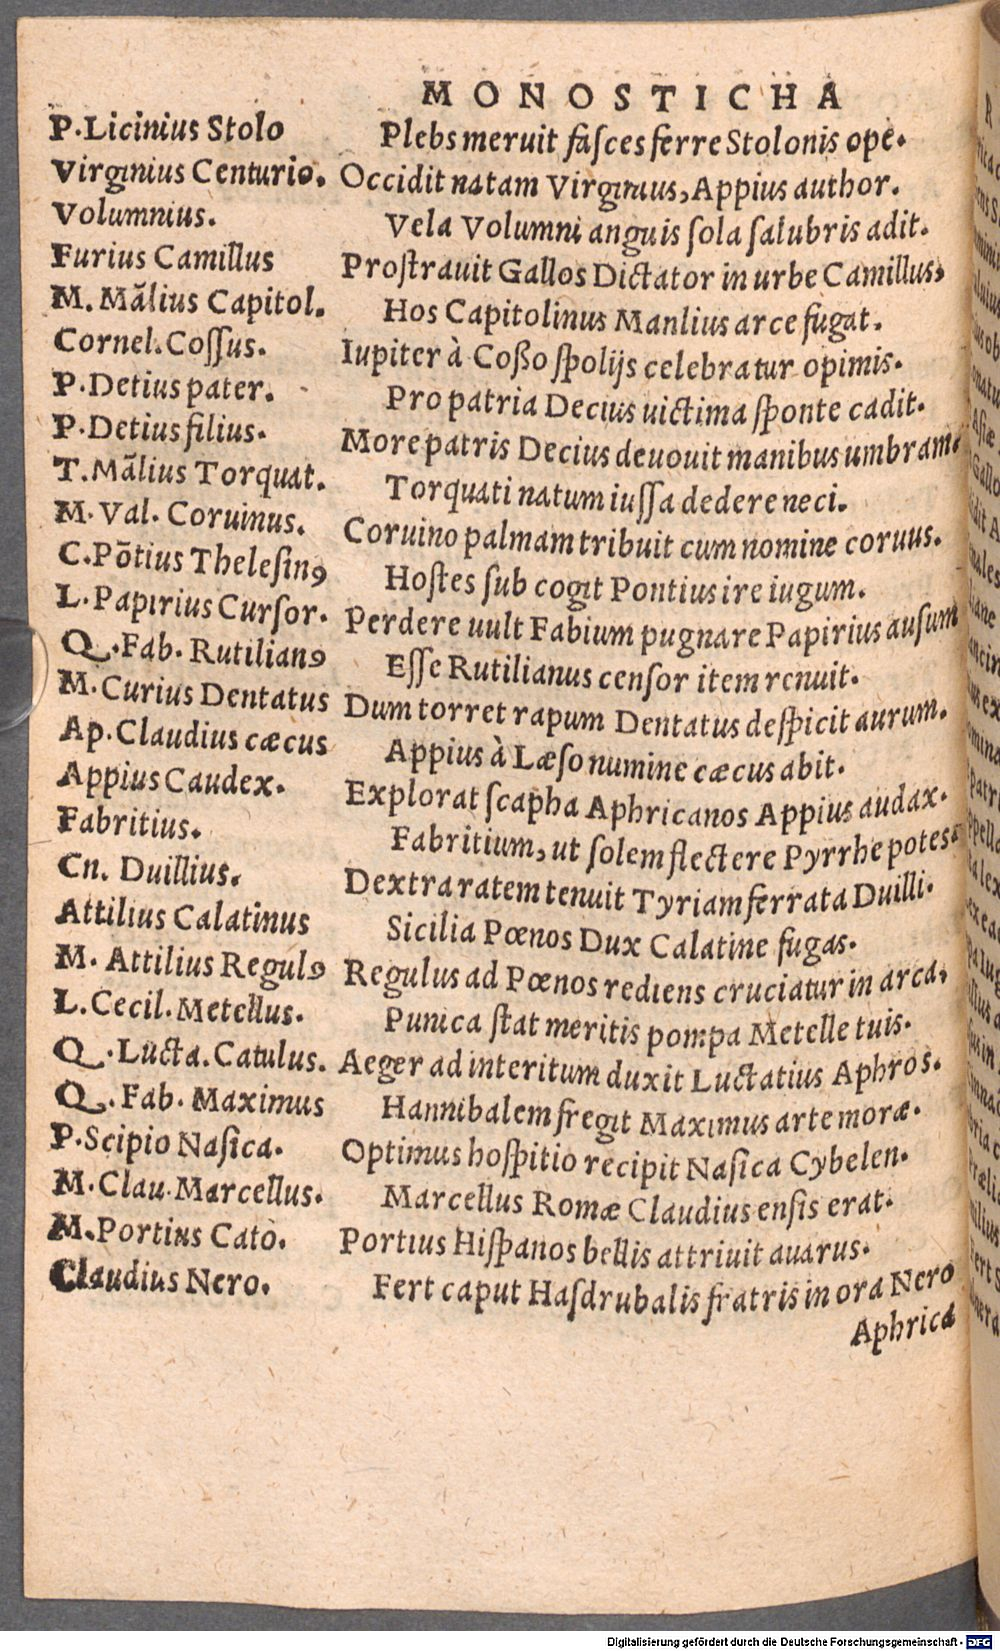 MONOSTICHA
P. Licinius Stolo Plebs meruit faſces ferre Stolonis ope.
Virginius Centurio. Occidit natam Virginius, Appius author.
Volumnius. Vela Volumni anguis ſola ſalubris adit.
Furius Camillus Proſtrauit Gallos Dictator in urbe Camillus,
M. Mãlius Capitol. Hos Capitolinus Manlius arce fugat.
Cornel. Coſſus. Iupiter à Coßo ſpolijs celebratur opimis.
P. Detius pater. Pro patria Decius uictima ſponte cadit.
P. Detius filius. More patris Decius deuouit manibus umbram.
T. Mãlius Torquat. Torquati natum iuſſa dedere neci.
M. Val. Coruinus. Coruino palmam tribuit cum nomine coruus.
C. Põtius Theleſinꝰ Hoſtes ſub cogit Pontius ire iugum.
L. Papirius Curſor. Perdere uult Fabium pugnare Papirius auſum
Q. Fab. Rutilianꝰ Eſſe Rutilianus cenſor item renuit.
M. Curius Dentatus Dum torret rapum Dentatus deſpicit aurum.
Ap. Claudius cæcus Appius à Læſo numine cæcus abit.
Appius Caudex. Explorat ſcapha Aphricanos Appius audax.
Fabritius. Fabritium, ut ſolem flectere Pyrrhe potes.
Cn. Duillius. Dextra ratem tenuit Tyriam ferrata Duilli.
Attilius Calatinus Sicilia Pœnos Dux Calatine fugas.
M. Attilius Regulꝰ Regulus ad Pœnos rediens cruciatur in arca,
L. Cecil. Metellus. Punica ſtat meritis pompa Metelle tuis.
Q. Lucta. Catulus. Aeger ad interitum duxit Luctatius Aphros.
Q. Fab. Maximus Hannibalem fregit Maximus arte moræ.
P. Scipio Naſica. Optimus hoſpitio recipit Naſica Cybelen.
M. Clau. Marcellus. Marcellus Romæ Claudius enſis erat.
M. Portius Cato. Portius Hiſpanos bellis attriuit auarus.
Claudius Nero. Fert caput Haſdrubalis fratris in ora Nero
Aphrica
Digitalisierung gefördert durch die Deutsche Forschungsgemeinschaft - DFG